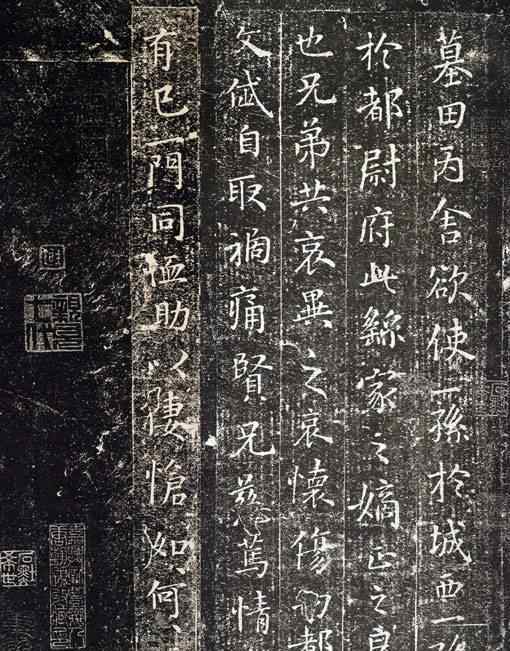 墓田丙舍欲使一孫於城西一
於都尉府此繇家之嫡正之良
也兄弟共哀異之哀懷傷切都
文岱自取禍痛賢兄慈篤情
有已一門同恤助以悽愴如何